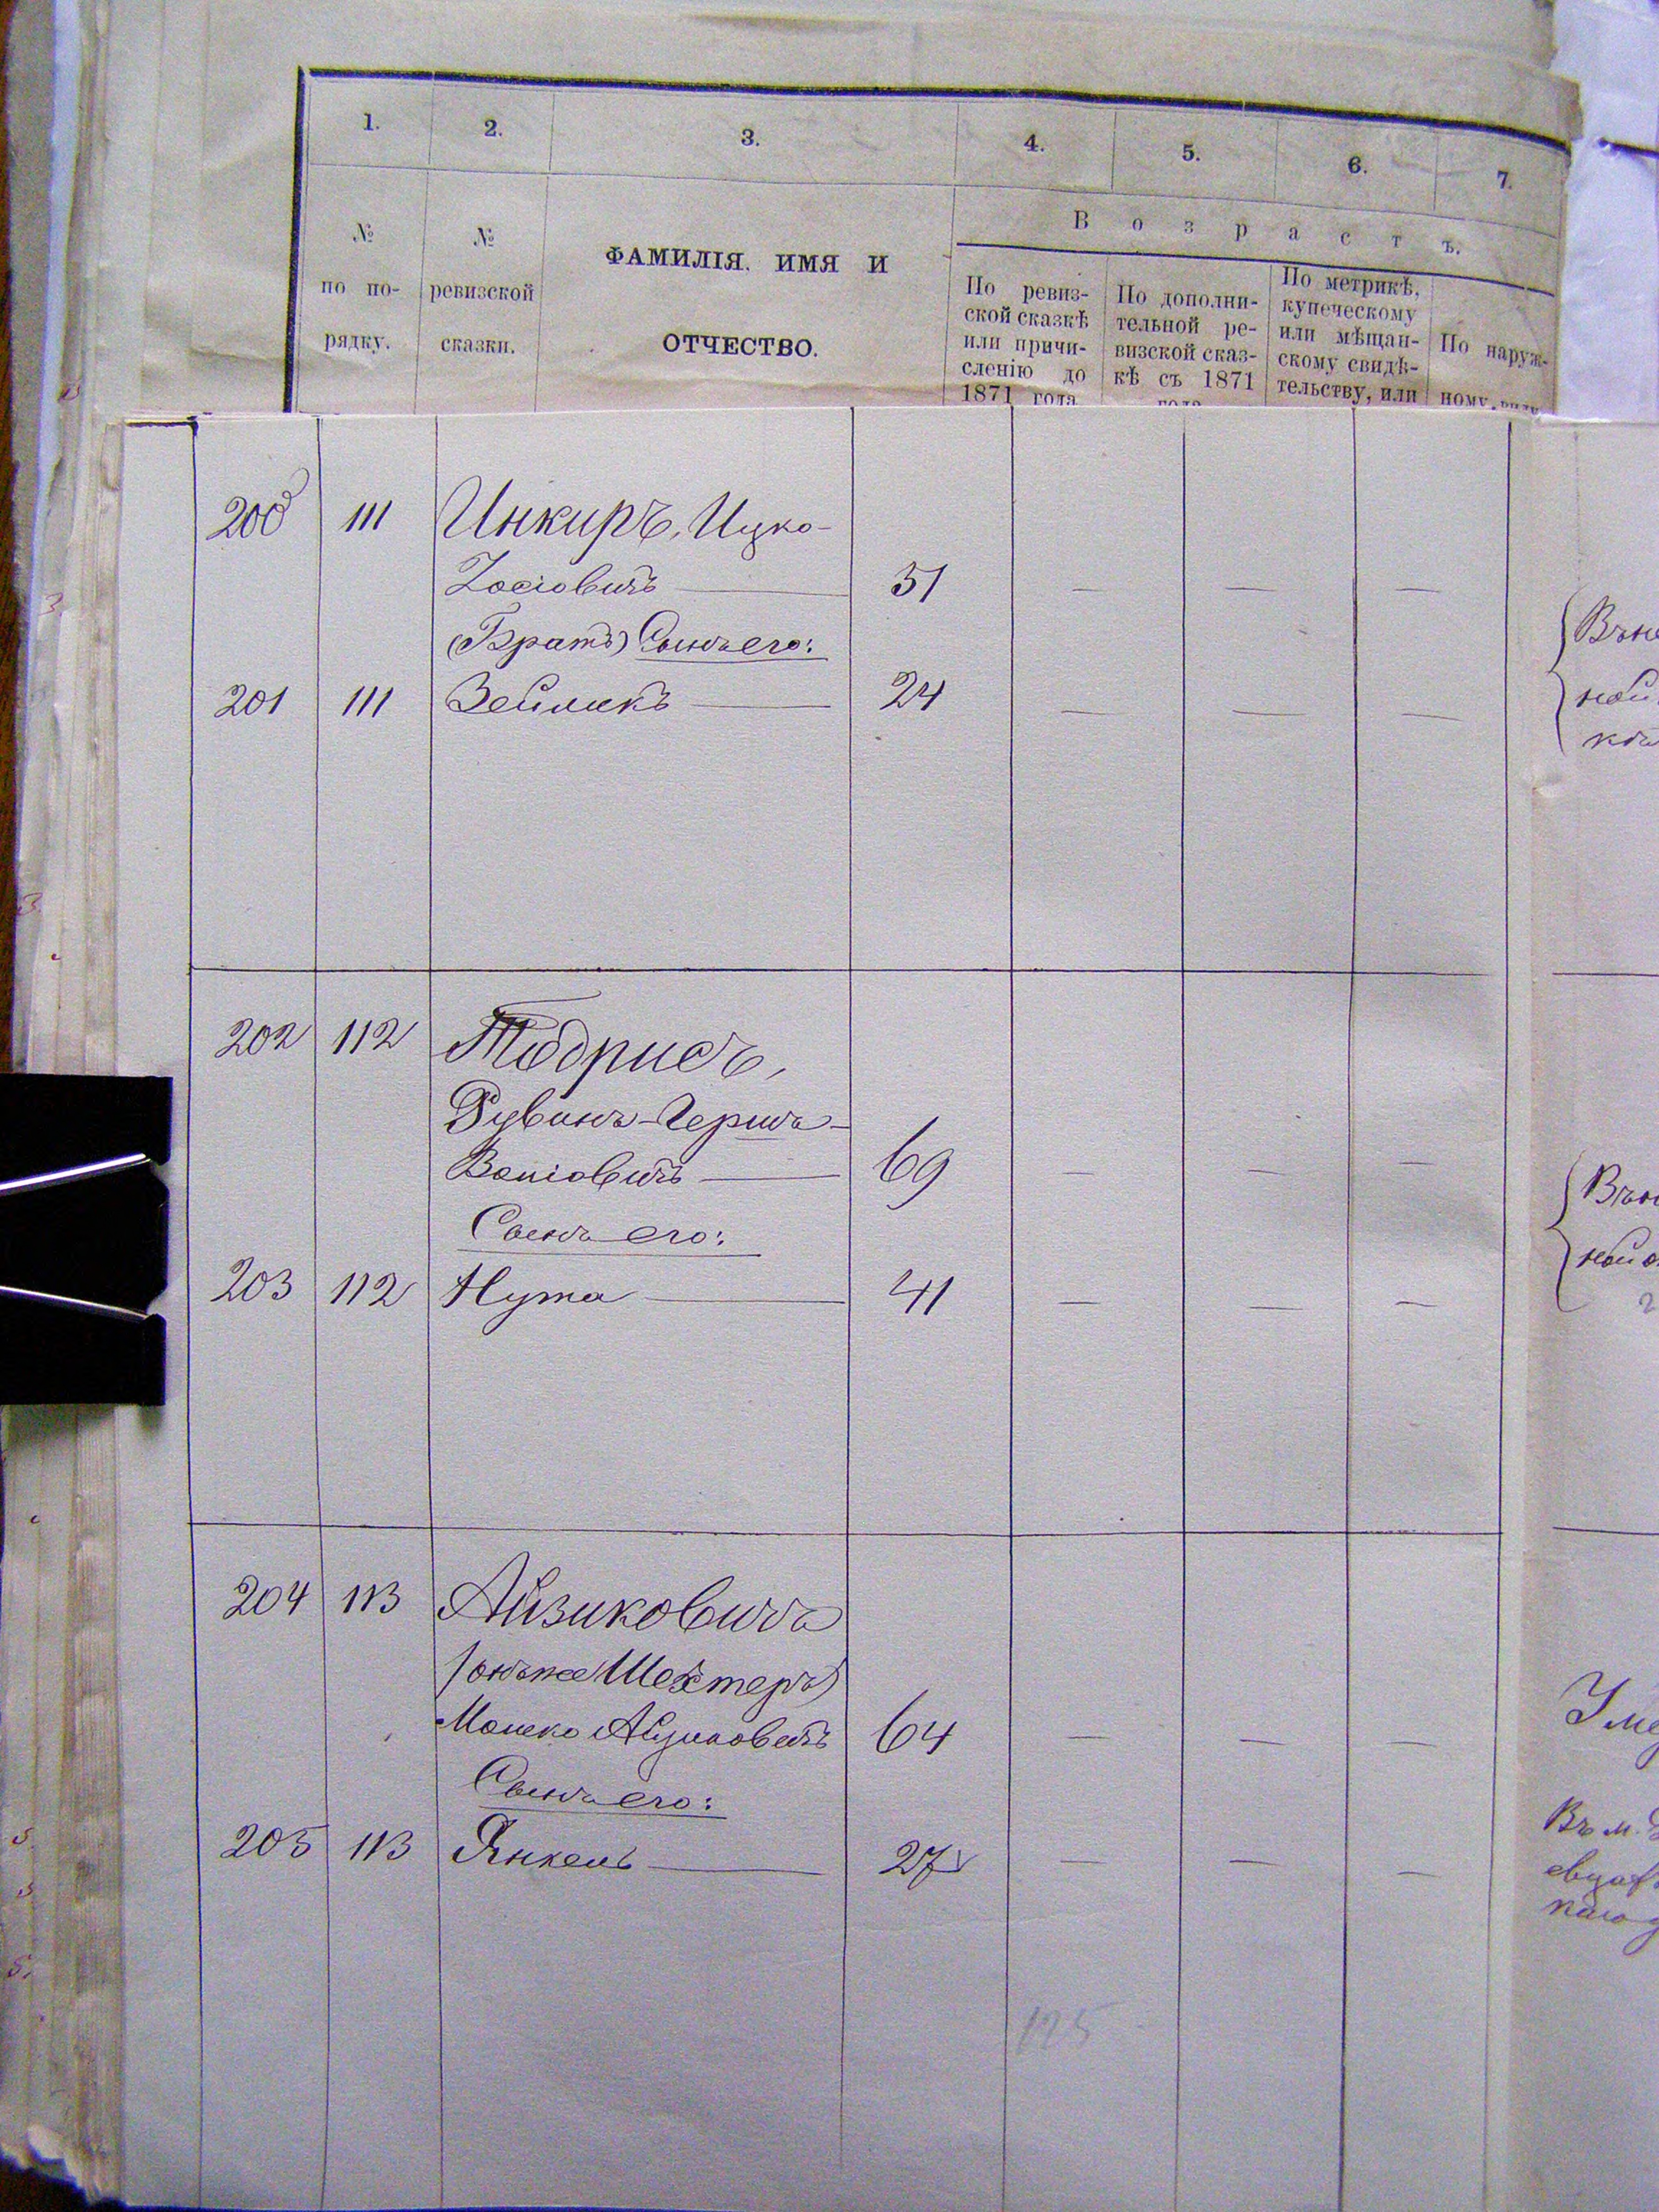 1. 2. 3. 4. 5. 6. 7.
№ по порядку.
№ ревизской сказки.
ФАМИЛІЯ, ИМЯ И
ОТЧЕСТВО.
В о з р а с т ъ.
По ревиз-
ской сказкѣ
или причи-
сленію до
1871 года
По дополни-
тельной ре-
визской сказ-
кѣ съ 1871
года
По метрикѣ,
купеческому
или мѣщан-
скому свидѣ-
тельству, или
По наруж-
ному виду
200 111 Инкиръ, Ицко-
Іосіовичъ — 51 — — —
(Братъ) Сынъ его:
201 111 Зейликъ — 24 — — —
202 112 Тодрисъ,
Рувинъ-Гершъ-
69 — — —
Сынъ его:
203 112 Нута — 41 — — —
204 113 Айзиковичъ
(онъ же Шехтеръ)
Мошко 64 — — —
Сынъ его:
205 113 Янкель — 27 — — —
125